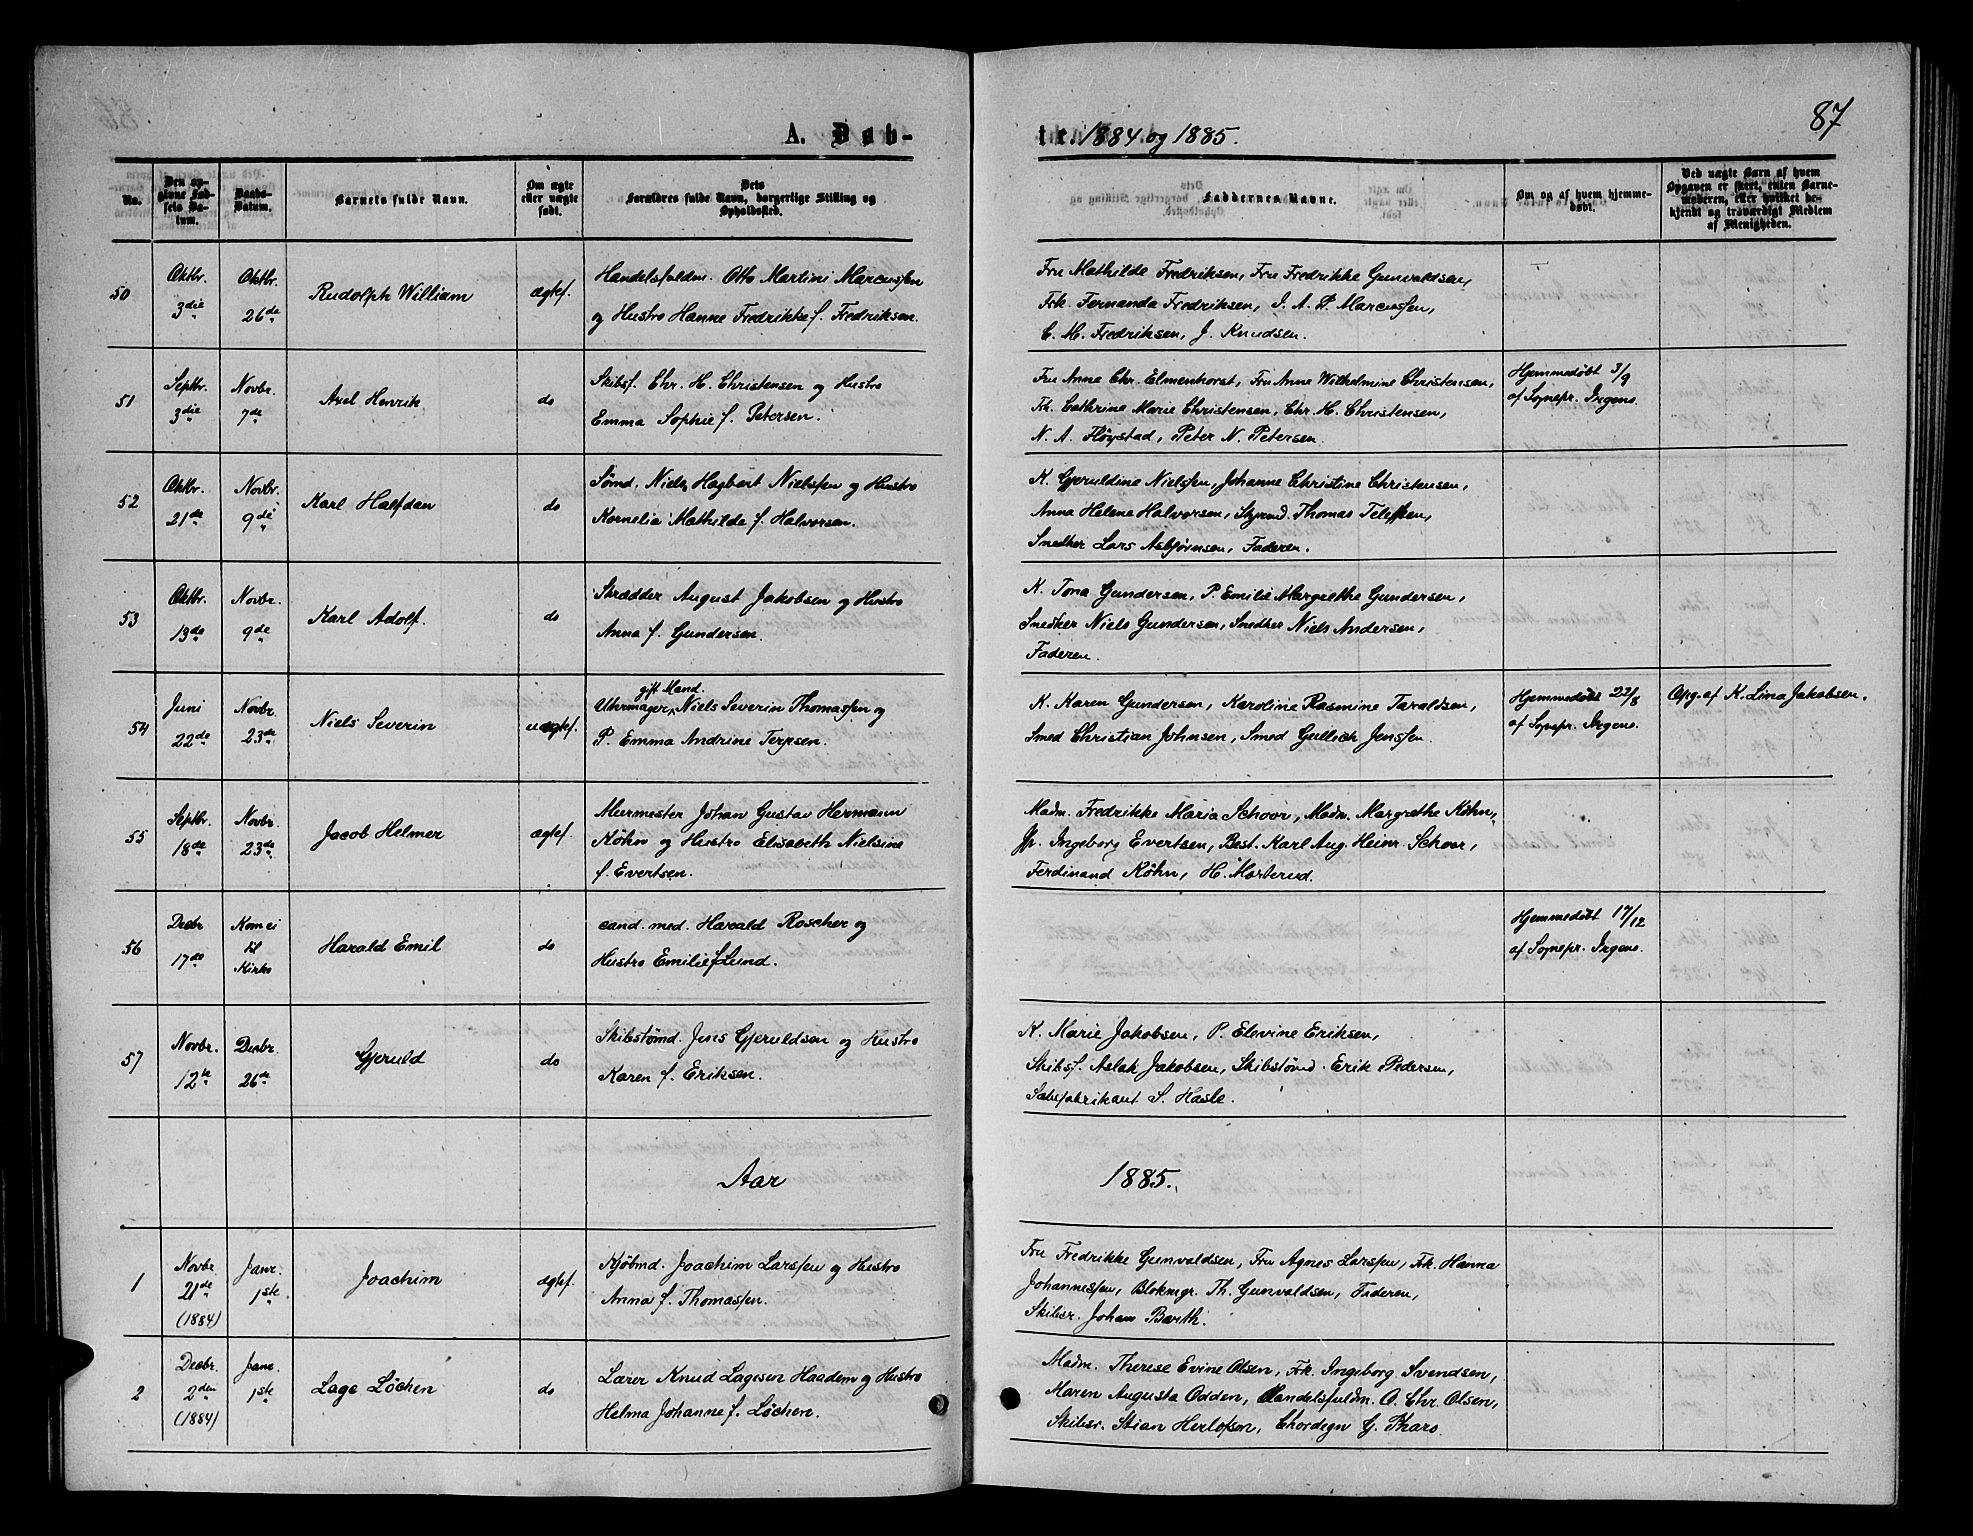 87
A. Døb-
te. 1884 og 1885.
No.
Den opgivne Fødsels Datum.
Daabs-Datum.
Barnets fulde Navn.
Om ægte eller uægte født.
Dets Forældres fulde Navn, borgerlige Stilling og Opholdssted.
Faddernes Navne.
Om og af hvem hjemmedøbt.
Ved uægte Børn af hvem Opgaven er skeet, enten Barnemoderen, eller hvilket bekjendt og troværdigt Medlem af Menigheden.
50
Oktbr. 3die
Oktbr. 26de
Rudolph William
ægtef.
Handelsfuldm. Otto Martini Marcussen
og Hustro Hanne Fredrikke f. Fredriksen.
Fru Mathilde Fredriksen, Fru Fredrikke Gunvaldsen,
Frk. Fernanda Fredriksen, I. A. P. Marcussen,
C. M. Fredriksen, J. Knudsen.
51
Septbr. 3die
Novbr. 7de
Axel Henrik
do
Skibsf. Chr. H. Christensen og Hustro
Emma Sophie f. Petersen.
Fru Anna Chr. Elmenhorst, Fru Anne Wilhelmine Christensen,
Frk. Cathrine Marie Christensen, Chr. H. Christensen,
N. A. Fløystad, Peter N. Petersen
Hjemmedøbt 3/9
af Sognepr. Irgens.
52
Oktbr. 21de
Novbr. 9de
Karl Halfdan
do
Sømd. Niels Hagbert Nielssen og Hustro
Kornelia Mathilde f. Halvorsen.
K. Gjeruldine Nielssen, Johanne Christine Christensen,
Anna Helene Halvorsen, Styrmd. Thomas Telefsen,
Snedker Lars Asbjørnsen, Faderen.
53
Oktbr. 13de
Novbr. 9de
Karl Adolf.
do
Skrædder August Jakobsen og Hustro
Anna f. Gundersen.
K. Tona Gundersen, P. Emilie Margrethe Gundersen,
Snedker Niels Gundersen, Snedker Niels Andersen,
Faderen.
54
Juni 22de
Novbr. 23de
Niels Severin
uægtef.
gift Mand.
Uhrmager, Niels Severin Thomassen og
P. Emma Andrine Terjesen.
K. Karen Gundersen, Karoline Rasmine Taraldsen,
Smed Christian Johnsen, Smed Gullich Jenssen.
Hjemmedøbt 22/8
af Sognepr. Irgens.
Opg. af K. Lina Jakobsen.
55
Septbr. 18de
Novbr. 23de
Jacob Helmer
ægtef.
Murmester Johan Gustav Hermann
Köhn og Hustro Elisabeth Nielsine
f. Evertsen.
Madm. Fredrikke Maria Schoor, Madm. Margrethe Köhn,
P. Ingeborg Evertsen, Best. Karl Aug. Heinr. Schoor,
Ferdinand Köhn, H. Marterud.
56
Decbr 17de
Kom ei
til
Kirke
Harald Emil
do
cand. med. Harald Roscher og
Hustro Emilie f. Lund.
Hjemmedøbt 17/12
af Sognepr. Irgens.
57
Novbr. 12te
Decbr. 26de
Gjeruld
do
Skibstømd. Jens Gjeruldsen og Hustro
Karen f. Eriksen.
K. Marie Jakobsen, P. Elevine Eriksen,
Skibsf. Aslak Jakobsen, Skibstømd. Erik Pedersen,
Sæbefabrikant S. Hasle.
Aar 1885.
1
Novbr 21de (1884)
Janr. 1ste
Joachim
ægtef.
Kjøbmd. Joachim Larssen og Hustro
Anna f. Thomassen.
Fru Fredrikke Gunvaldsen, Fru Agnes Larssen, Frk. Hanna
Johannessen, Blokmgr. Th. Gunvaldsen, Faderen,
Skibsr. Johan Barth.
2
Decbr. 2den (1884)
Janr. 1ste
Lage Löchen
do
Lærer Knud Lagesen Haadem og Hustro
Helma Johanne f. Löchen.
Madm. Therese Evine Olsen, Frk. Ingeborg Svendsen,
Maren Augusta Odden, Handelsfuldm. O. Chr. Olsen,
Skibsr. Stian Herlofsen, Chordegn G. Tharo.